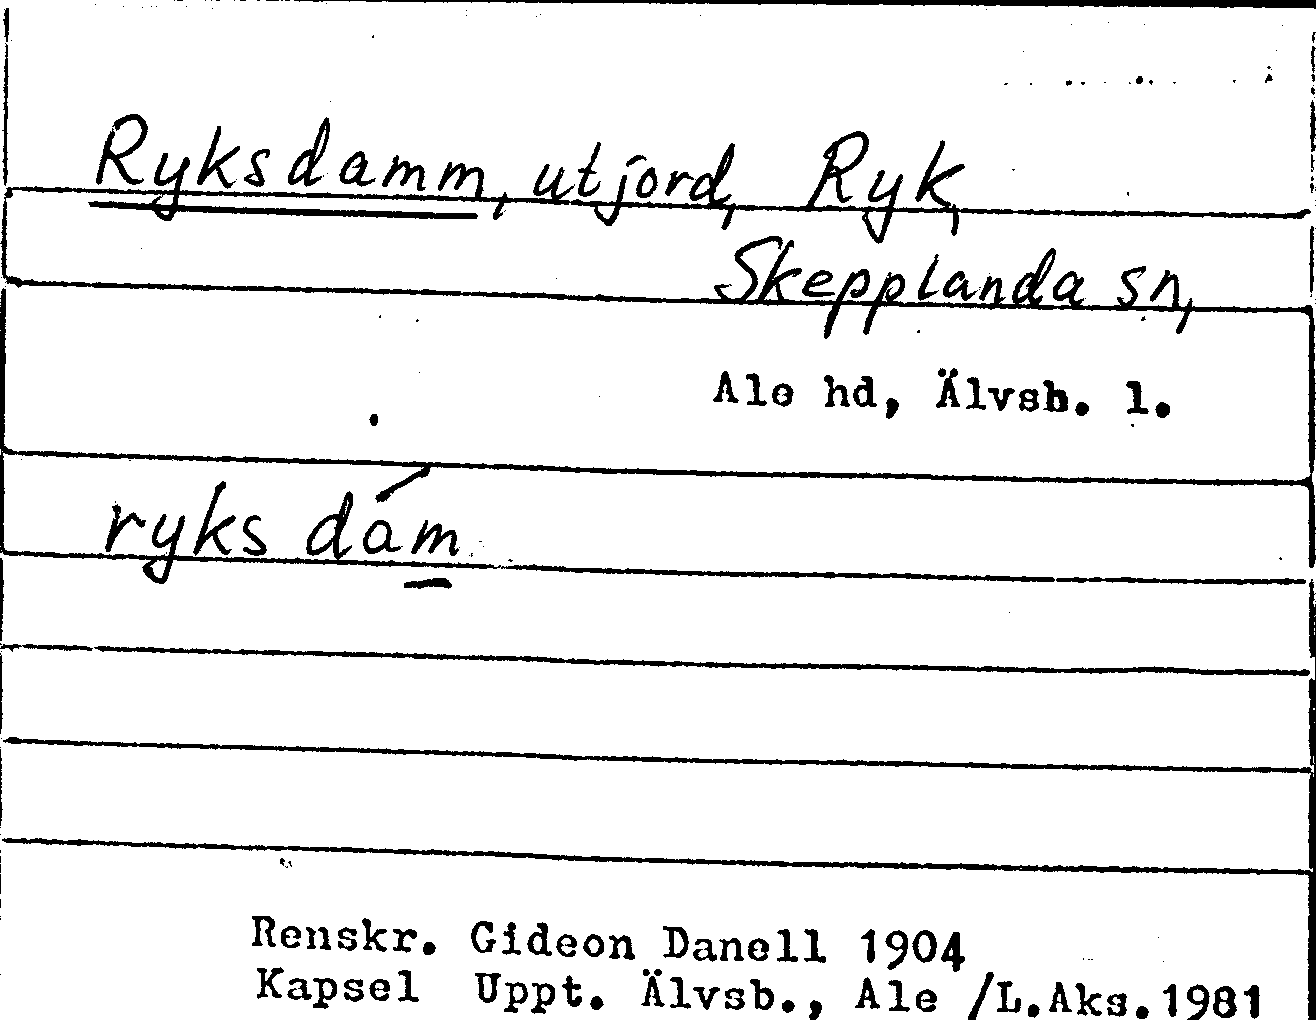 Ryksdamm, utjord, Ryk,
Skepplanda sn,
Ale hd, Älvsb. l.
ryks dám
Renskr. Gideon Danell 1904
Kapsel Uppt. Älvsb., Ale /L.Aks.1981